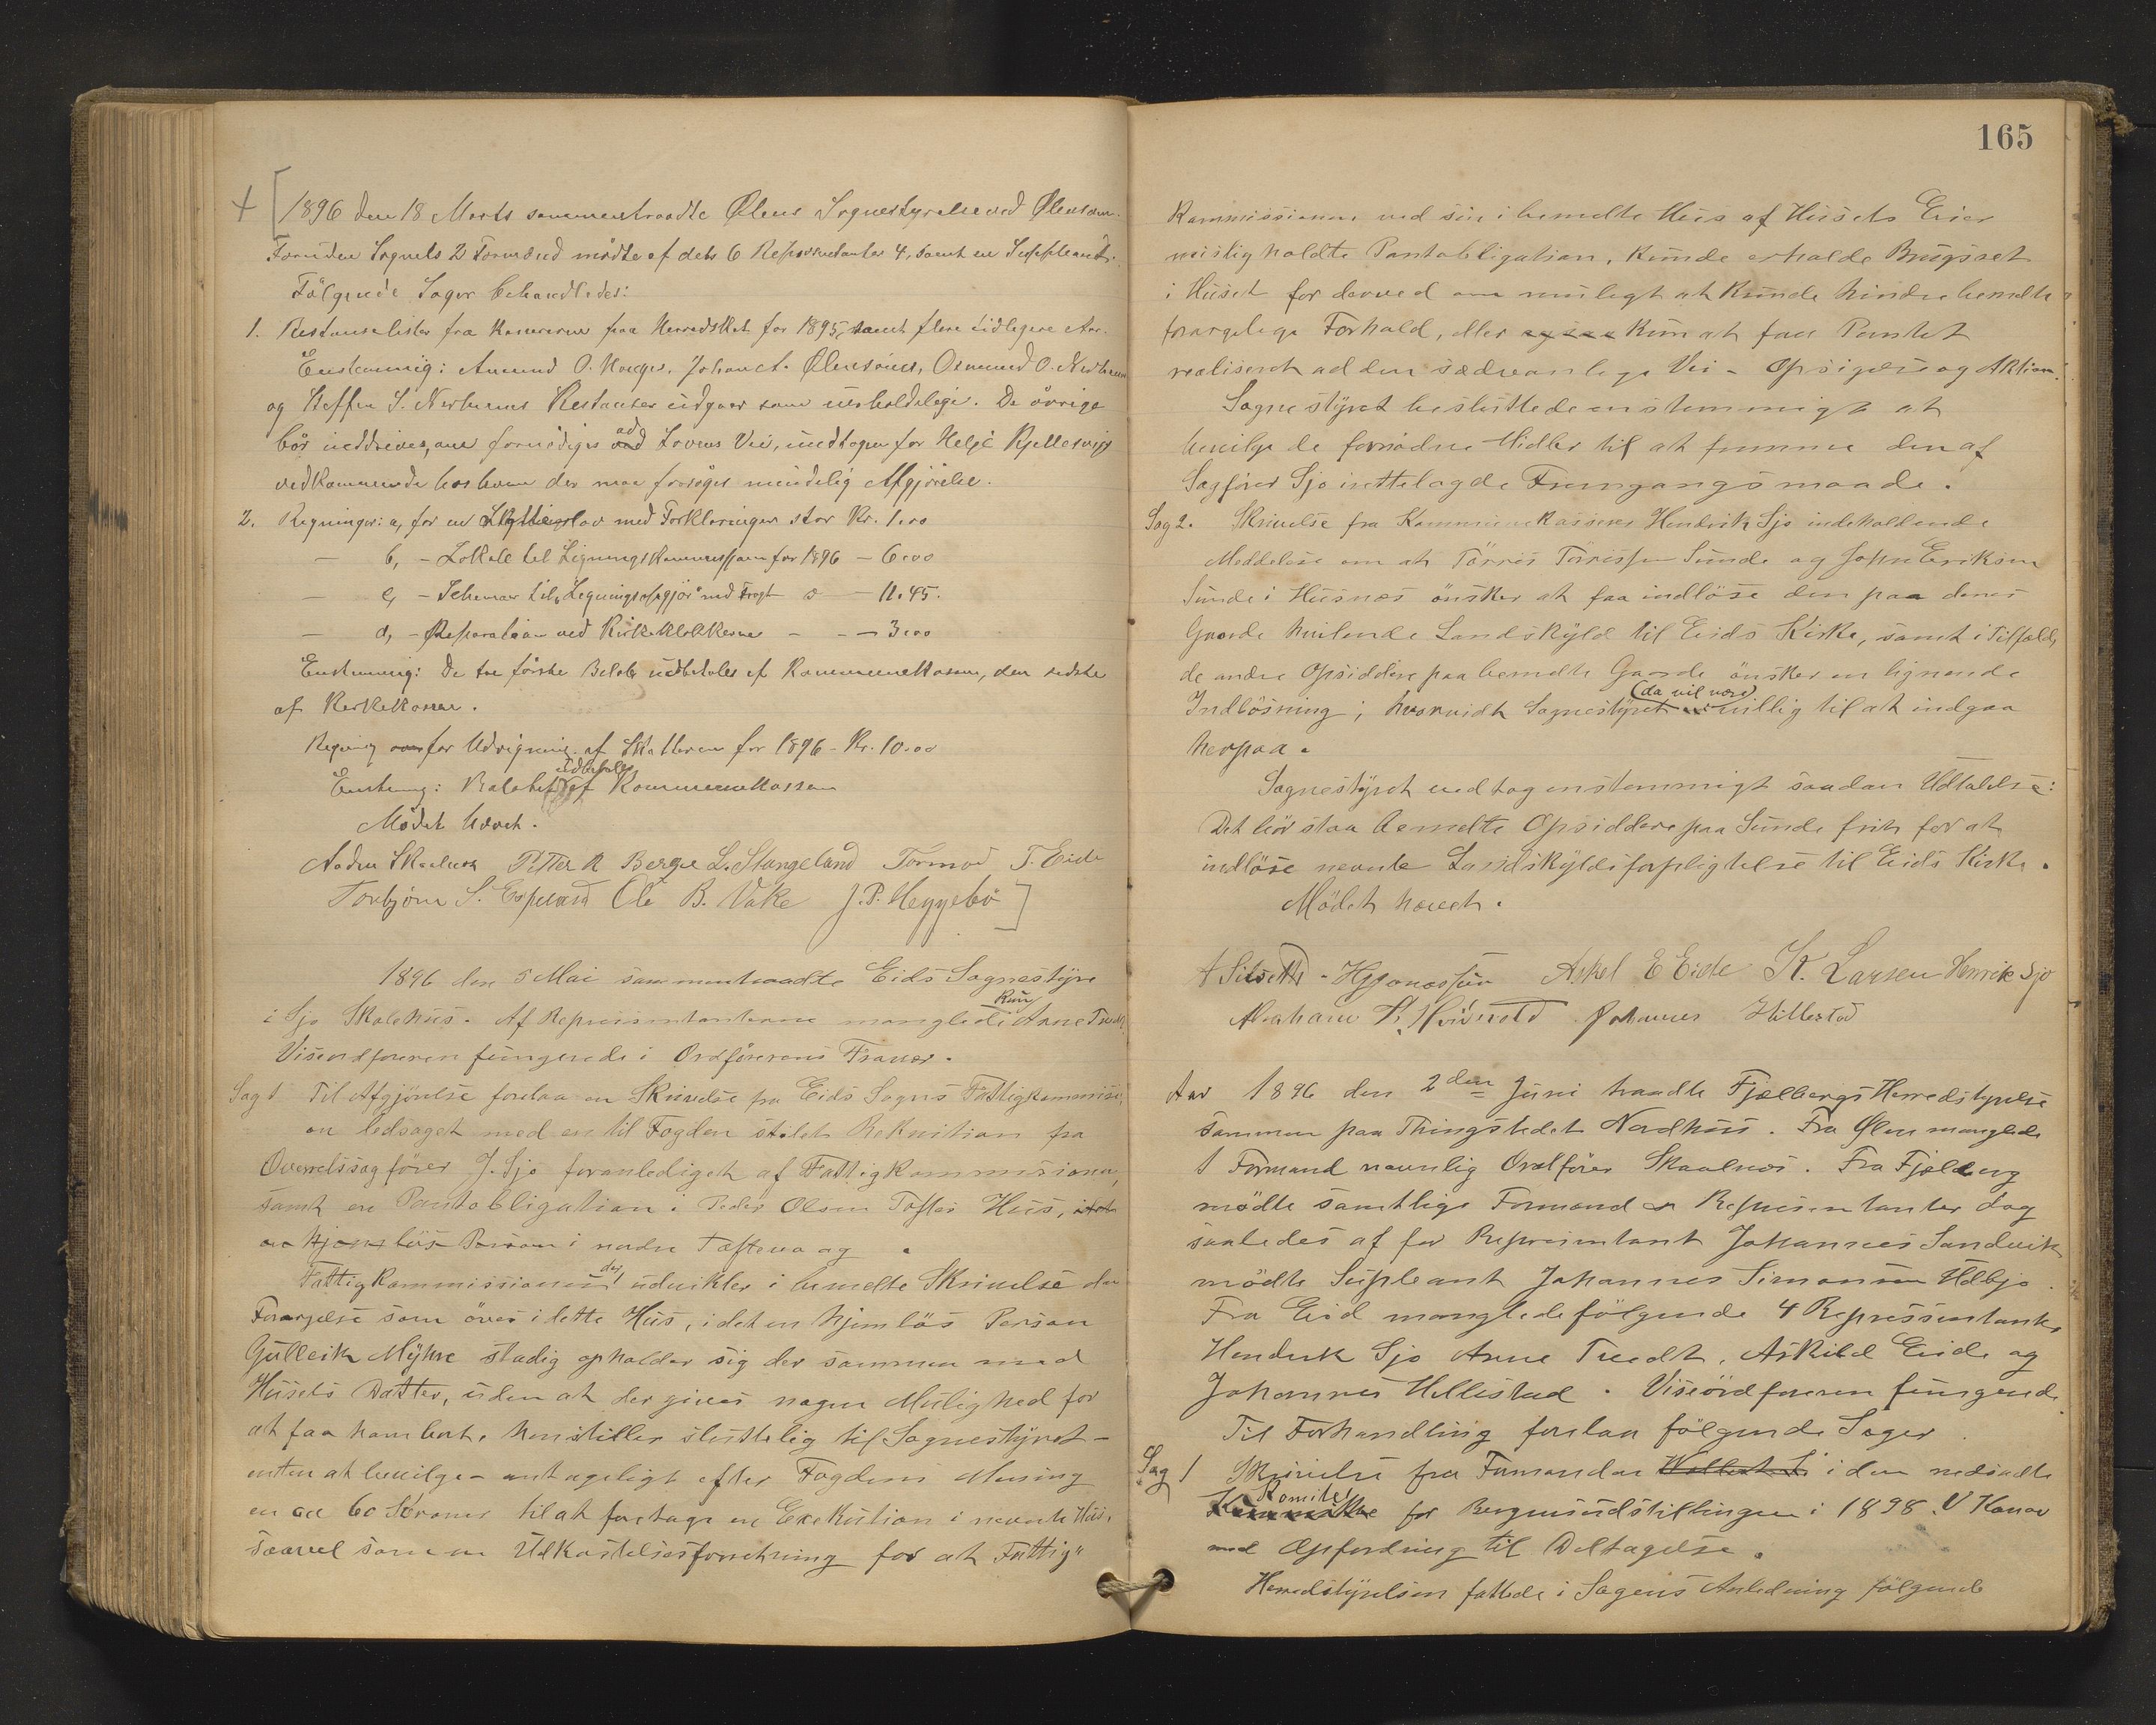 1896 den 18 Marts sammentraadte Ølens Sognestyrelse ved Ølensøen.
Foruden Sognets 2 Formænd mødte af dets 6 Repræsentanter 4, samt en Suppleant.
Følgende Sager behandledes:
1. Restanselister fra Kassereren paa Herredskat for 1895, samt flere tidligere Aar.
Enstemmig: Amund O. Hauges, Johan A. Ølensøens, Osmund O.
og Steffen S. Nerheims Restanser udgaar som uerholdelige. De øvrige
bør inddrives, om fornødiges ad Lovens Vei, undtagen for Helje Kjellesvig
vedkommende hos hvem der maa forsøges mindelig Afgjørelse.
2. Regninger: a, for en lov med Forklaringer stor Kr. 1.00
— b, – Lokale til Ligningskommissionen for 1896 – 6.00
— c, – Schemaer til Ligningsopgjør med Fragt – 11.45.
— d, – Reparation ved Kirkeklokkerne – – 3.00
Enstemmig: De tre første Beløb udbetales af Kommunekassen, den sidste
af Kirkekassen.
Regning for Udregning af Skatterne for 1896 – Kr. 10.00
Enstemmig: Beløbet udbetales af Kommunekassen
Mødet hævet.
Aadne Skaalnes Peter R Berge L. Stangeland Tormod T. Eide
Torbjørn S. Espeland Ole B. Vake J. P. Heggebø

1896 den 5 Mai sammentraadte Eids Sognestyre
i Sjo Skolehus. Af Repræsentanterne manglede kun Arne Tvedt
Viseordføreren fungerede i Ordførerens Fravær.
Sag 1 Til Afgjørelse forelaa en Skrivelse fra Eids Sogns Fattigkommission,
ledsaget med en til Fogden stilet Rekvisition fra
Overretssagfører J. Sjo foranlediget af Fattigkommissionen,
samt en Pantobligation i Peder Olsen Toftes Hus,
en hjemløs Person i nedre Tøfteva og .
Fattigkommissionen udvikler i bemeldte Skrivelse den
Forargelse som øves i dette Hus, idet en hjemløs Person
Gulleik Myhre stadig opholder sig der sammen med
Husets Datter, uden at der gives nogen Mulighed for
at faa ham bort, henstiller sluttelig til Sognestyret –
enten at bevilge – antageligt efter Fogdens Mening
en ca 60 Kroner til at foretage en Exekution i nevnte Hus,
saavel som en Udkastelsesforretning for at Fattig"

165
Kommissionen ved sin i bemeldte Hus af Husets Eier
misligholdte Pantobligation, kunde erholde Brugsret
i Huset for derved om muligt at kunde hindre bemeldte
forargelige Forhold, eller kun at faa Pantet
realiseret ad den sædvanlige Vei – Opsigelse og Aktion.
Sognestyret besluttede enstemmigt at
bevilge de fornødne Midler til at fremme den af
Sagfører Sjo irettelagde Fremgangsmaade.
Sag 2. Skrivelse fra Kommunekasserer Hendrik Sjo indeholdende
Meddelese om at Tørris Tørrissen Sunde og John Eriksen
Sunde i Husnes ønsker at faa indløse den paa deres
Gaarde hvilende Landskyld til Eids Kirke, samt i Tilfælde
de andre Opsiddere paa bemeldte Gaarde ønsker en lignende
Indløsning; hvorvidt Sognestyret (da vil være) villig til at indgaa
herpaa.
Sognestyret vedtog enstemmigt saadan Udtalelse:
Det bør staa bemeldte Opsiddere paa Sunde frit for at
indløse nevnte Landskyldsforpligtelse til Eids Kirke.
Mødet hævet.
Askel E Eide K. Larsen Henrik Sjo
Abraham Johannes Hillestad

Aar 1896 den 2den Juni traadte Fjælbergs Herredstyrelse
sammen paa Thingstedet Nordhuus. Fra Ølen manglede
1 Formand navnlig Ordfører Skaalnes. Fra Fjælberg
mødte samtlige Formænd & Repræsentanter dog
saaledes at for Repræsentant Johannes Sandvik
mødte Supleant Johannes Simonsen Udbjo.
Fra Eid manglede følgende 4 Repressentanter
Hendrik Sjo Arne Tvedt, Askild Eide og
Johannes Hillestad. Viseordføreren fungerede.
Til Forhandling forelaa følgende Sager.
Sag 1 Skrivelse fra Formanden i den nedsatte
Komite for Bergensudstillingen i 1898. V Konow
med Opfordring til Deltagelse.
Herredstyrelsen fattede i Sagens Anledning følgende